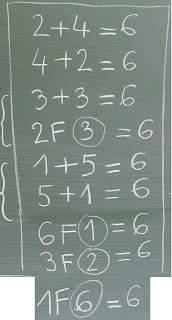 2+4=6
4+2=6
3+3=6
2F③=6
1+5=6
5+1=6
6F①=6
3F②=6
1F⑥=6